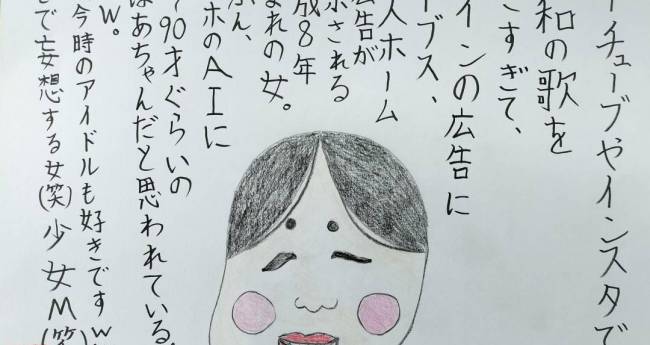 ーチューブやインスタで
和の歌を
すぎて、
インの広告に
ーブス、
人ホーム
広告が
示される
成8年
まれの女。
ぶん、
ホのAIに
90才ぐらいの
ばあちゃんだと思われている。
w。
今時のアイドルも好きですw
で妄想する女(笑)少女M(笑)